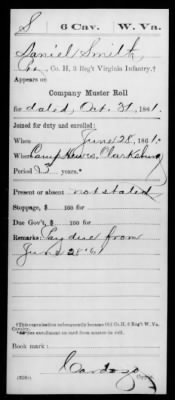 S 6 Cav. W. Va.
Daniel Smith,
Co. H, 3 Reg't Virginia Infantry.†
Appears on
Company Muster Roll
for dated, Oct. 31, 1861.
Joined for duty and enrolled:
When June 28, 1861.*
Where Clarksburg
Period years.*
Present or absent not stated
Stoppage, $ 100 for
Due Gov't, $ 100 for
Remarks: Pay due from
June 28 '61
†This organization subsequently became Co. H, 6 Reg't W. Va. Cavalry.
*See enrollment on card from muster-in roll.
Book mark:
Cardozo
Copyist.